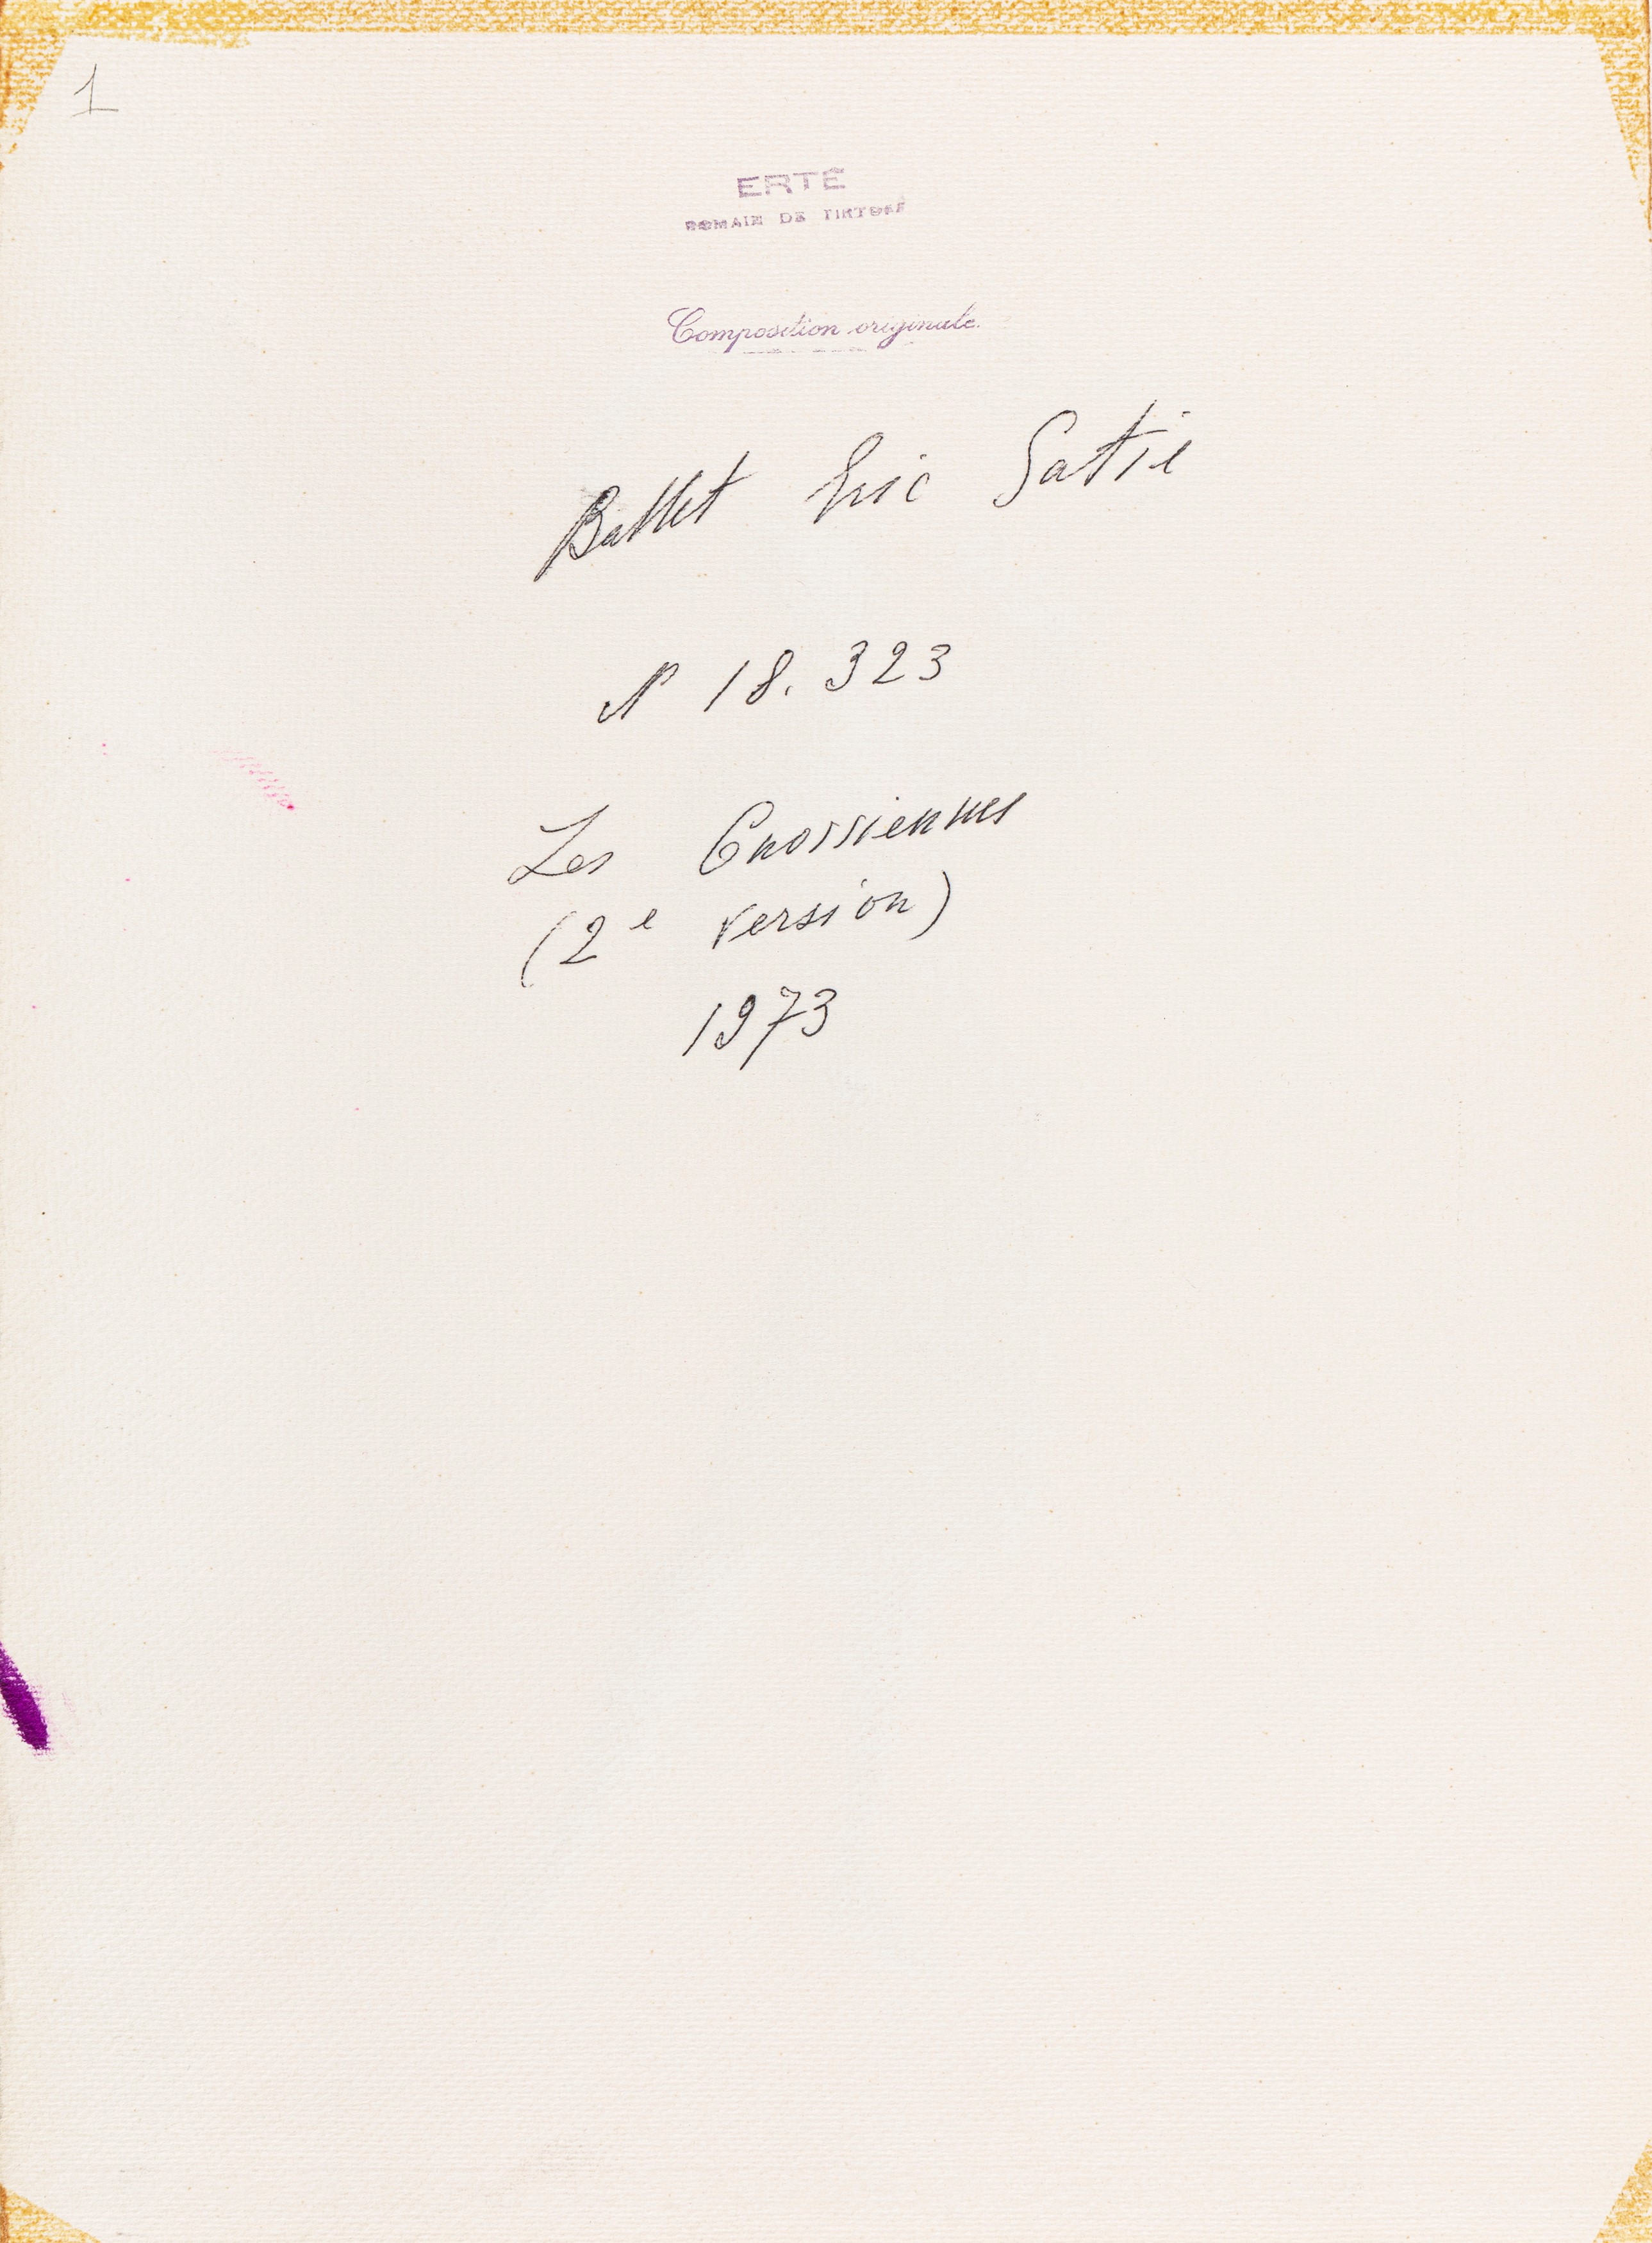 1
ERTÉ
ROMAIN DE TIRTOFF
Composition originale.
Ballet Eric Satie
N 18.323
Les Gnossiennes
(2e version)
1973